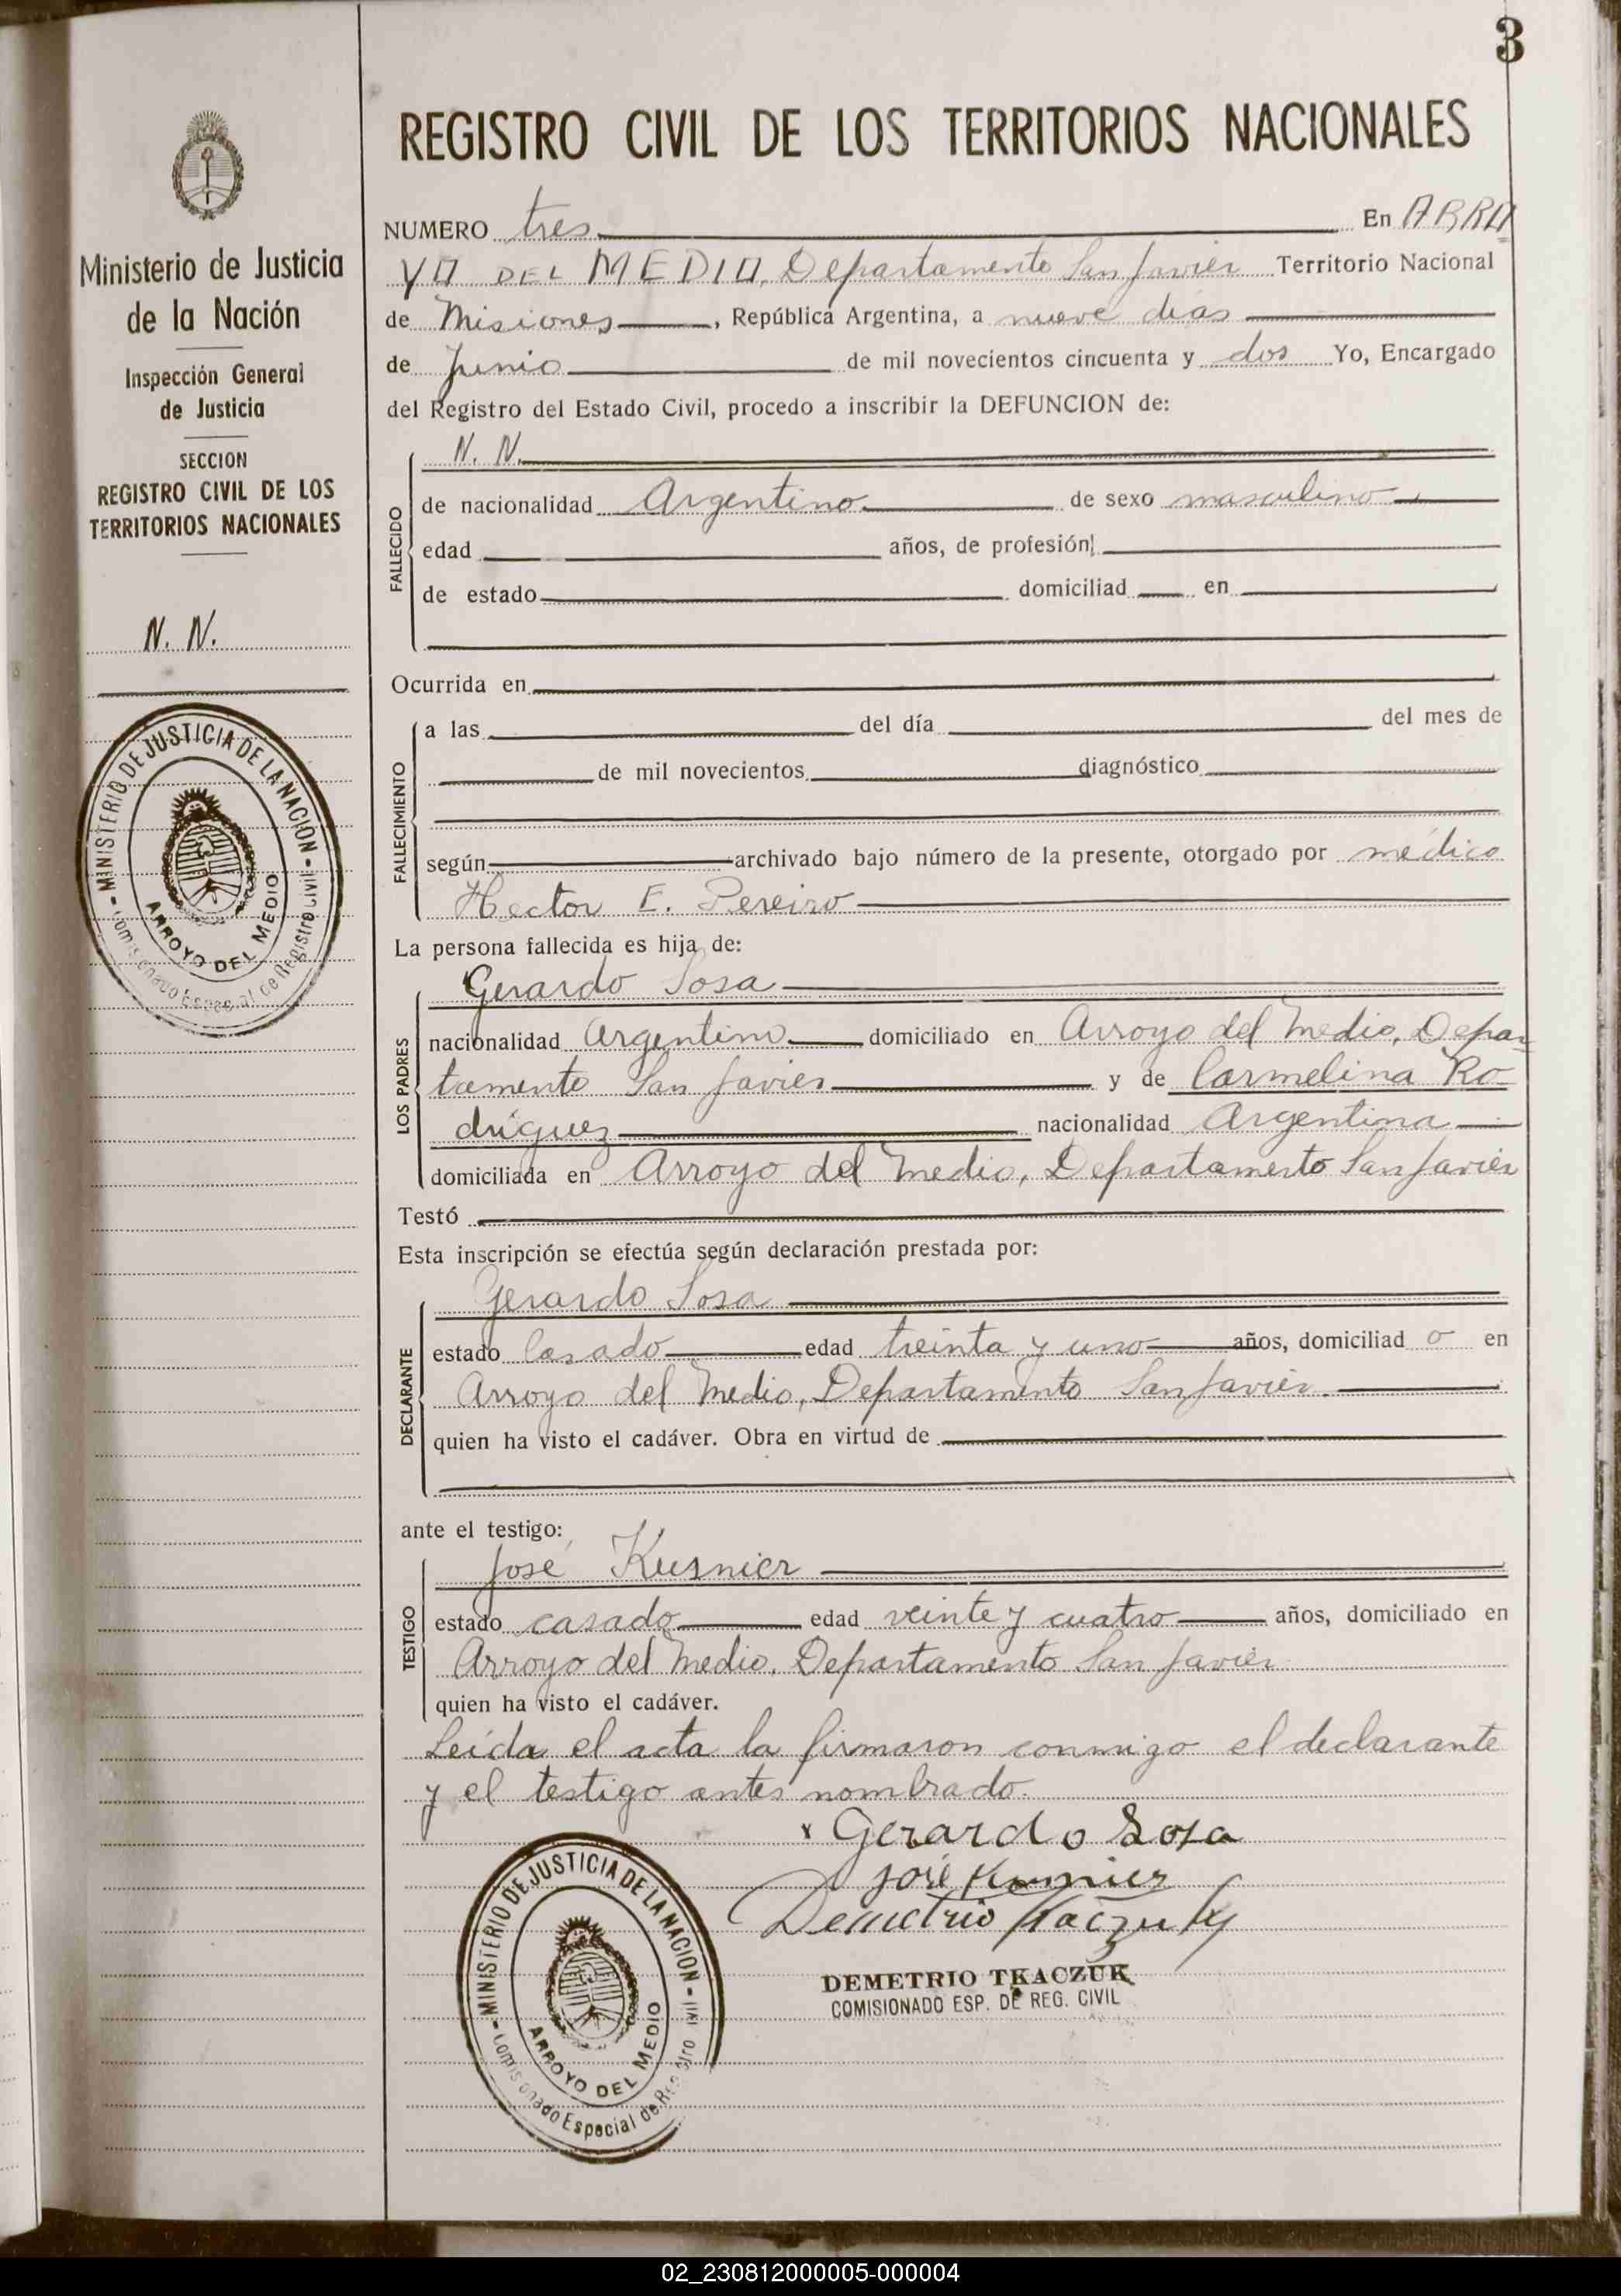 3
REGISTRO CIVIL DE LOS TERRITORIOS NACIONALES
Ministerio de Justicia
de la Nación
Inspección General
de Justicia
SECCION
REGISTRO CIVIL DE LOS
TERRITORIOS NACIONALES
N. N.
MINISTERIO DE JUSTICIA DE LA NACION
ARROYO DEL MEDIO
Comisionado Especial de Registro Civil
NUMERO tres En ARRO
YO DEL MEDIO, Departamento San Javier Territorio Nacional
de Misiones, República Argentina, a nueve dias
de Junio de mil novecientos cincuenta y dos Yo, Encargado
del Registro del Estado Civil, procedo a inscribir la DEFUNCION de:
N. N.
FALLECIDO
de nacionalidad Argentino de sexo masculino
edad años, de profesión
de estado domiciliad en
Ocurrida en
FALLECIMIENTO
a las del día del mes de
de mil novecientos diagnóstico
según archivado bajo número de la presente, otorgado por médico
Hector E. Pereiro
La persona fallecida es hija de:
LOS PADRES
Gerardo Sosa
nacionalidad Argentino domiciliado en Arroyo del Medio, Depar-
tamento San Javier y de Carmelina Ro
driguez nacionalidad Argentina
domiciliada en Arroyo del Medio, Departamento San Javier
Testó
Esta inscripción se efectúa según declaración prestada por:
DECLARANTE
Gerardo Sosa
estado Casado edad treinta y uno años, domiciliad o en
Arroyo del Medio, Departamento San Javier.
quien ha visto el cadáver. Obra en virtud de
ante el testigo:
TESTIGO
José Kusnier
estado casado edad veinte y cuatro años, domiciliado en
Arroyo del Medio, Departamento San Javier
quien ha visto el cadáver.
Leída el acta la firmaron conmigo el declarante
y el testigo antes nombrado.
x Gerardo Sosa
José Kusnier
Demetrio Tkaczuk
DEMETRIO TKACZUK
COMISIONADO ESP. DE REG. CIVIL
MINISTERIO DE JUSTICIA DE LA NACION
ARROYO DEL MEDIO
Comisionado Especial de Registro Civil
02_230812000005-000004